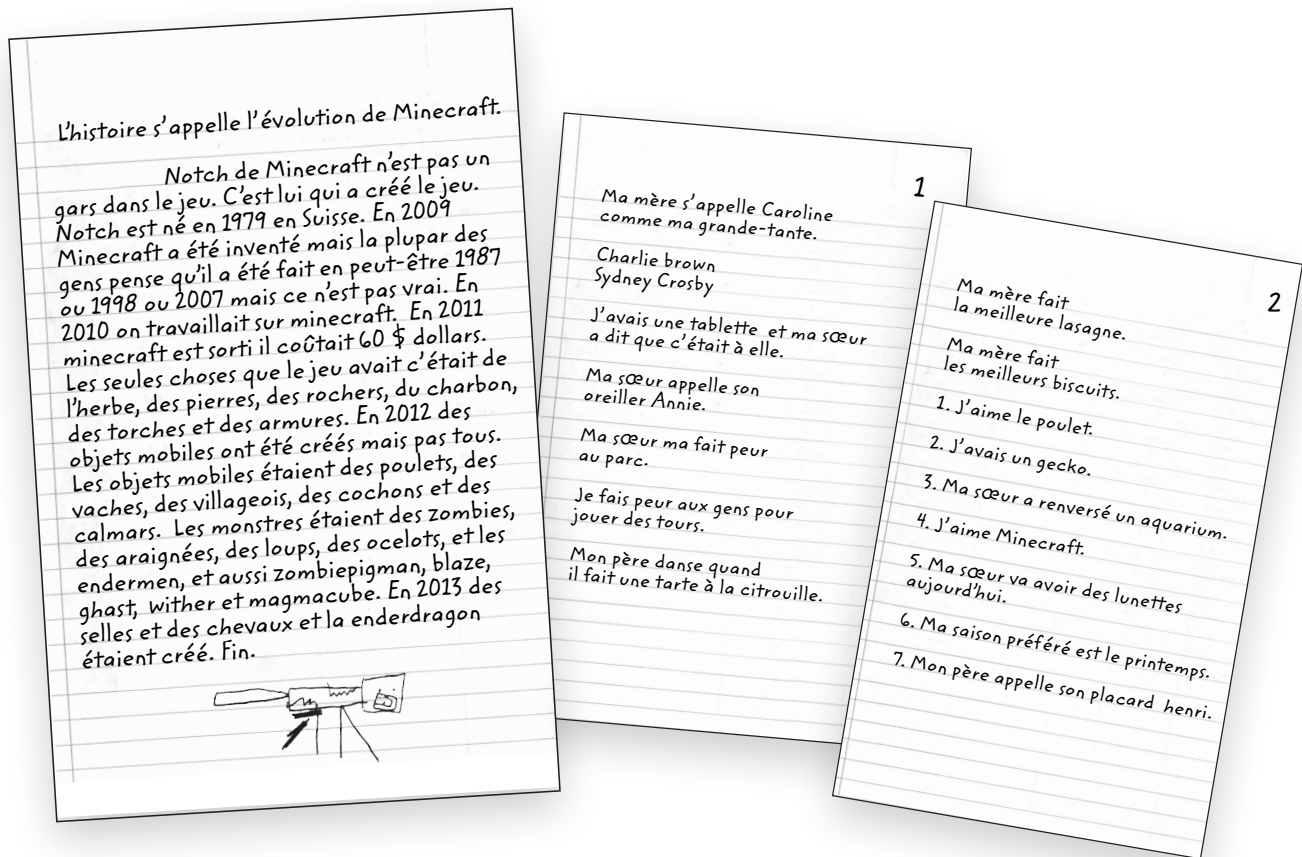 L'histoire s'appelle l'évolution de Minecraft.
Notch de Minecraft n'est pas un
gars dans le jeu. C'est lui qui a créé le jeu.
Notch est né en 1979 en Suisse. En 2009
Minecraft a été inventé mais la plupar des
gens pense qu'il a été fait en peut-être 1987
ou 1998 ou 2007 mais ce n'est pas vrai. En
2010 on travaillait sur minecraft. En 2011
minecraft est sorti il coûtait 60 $ dollars.
Les seules choses que le jeu avait c'était de
l'herbe, des pierres, des rochers, du charbon,
des torches et des armures. En 2012 des
objets mobiles ont été créés mais pas tous.
Les objets mobiles étaient des poulets, des
vaches, des villageois, des cochons et des
calmars. Les monstres étaient des zombies,
des araignées, des loups, des ocelots, et les
endermen, et aussi zombiepigman, blaze,
ghast, wither et magmacube. En 2013 des
selles et des chevaux et la enderdragon
étaient créé. Fin.
1
Ma mère s'appelle Caroline
comme ma grande-tante.
Charlie brown
Sydney Crosby
J'avais une tablette et ma sœur
a dit que c'était à elle.
Ma sœur appelle son
oreiller Annie.
Ma sœur ma fait peur
au parc.
Je fais peur aux gens pour
jouer des tours.
Mon père danse quand
il fait une tarte à la citrouille.
2
Ma mère fait
la meilleure lasagne.
Ma mère fait
les meilleurs biscuits.
1. J'aime le poulet.
2. J'avais un gecko.
3. Ma sœur a renversé un aquarium.
4. J'aime Minecraft.
5. Ma sœur va avoir des lunettes
aujourd'hui.
6. Ma saison préféré est le printemps.
7. Mon père appelle son placard henri.